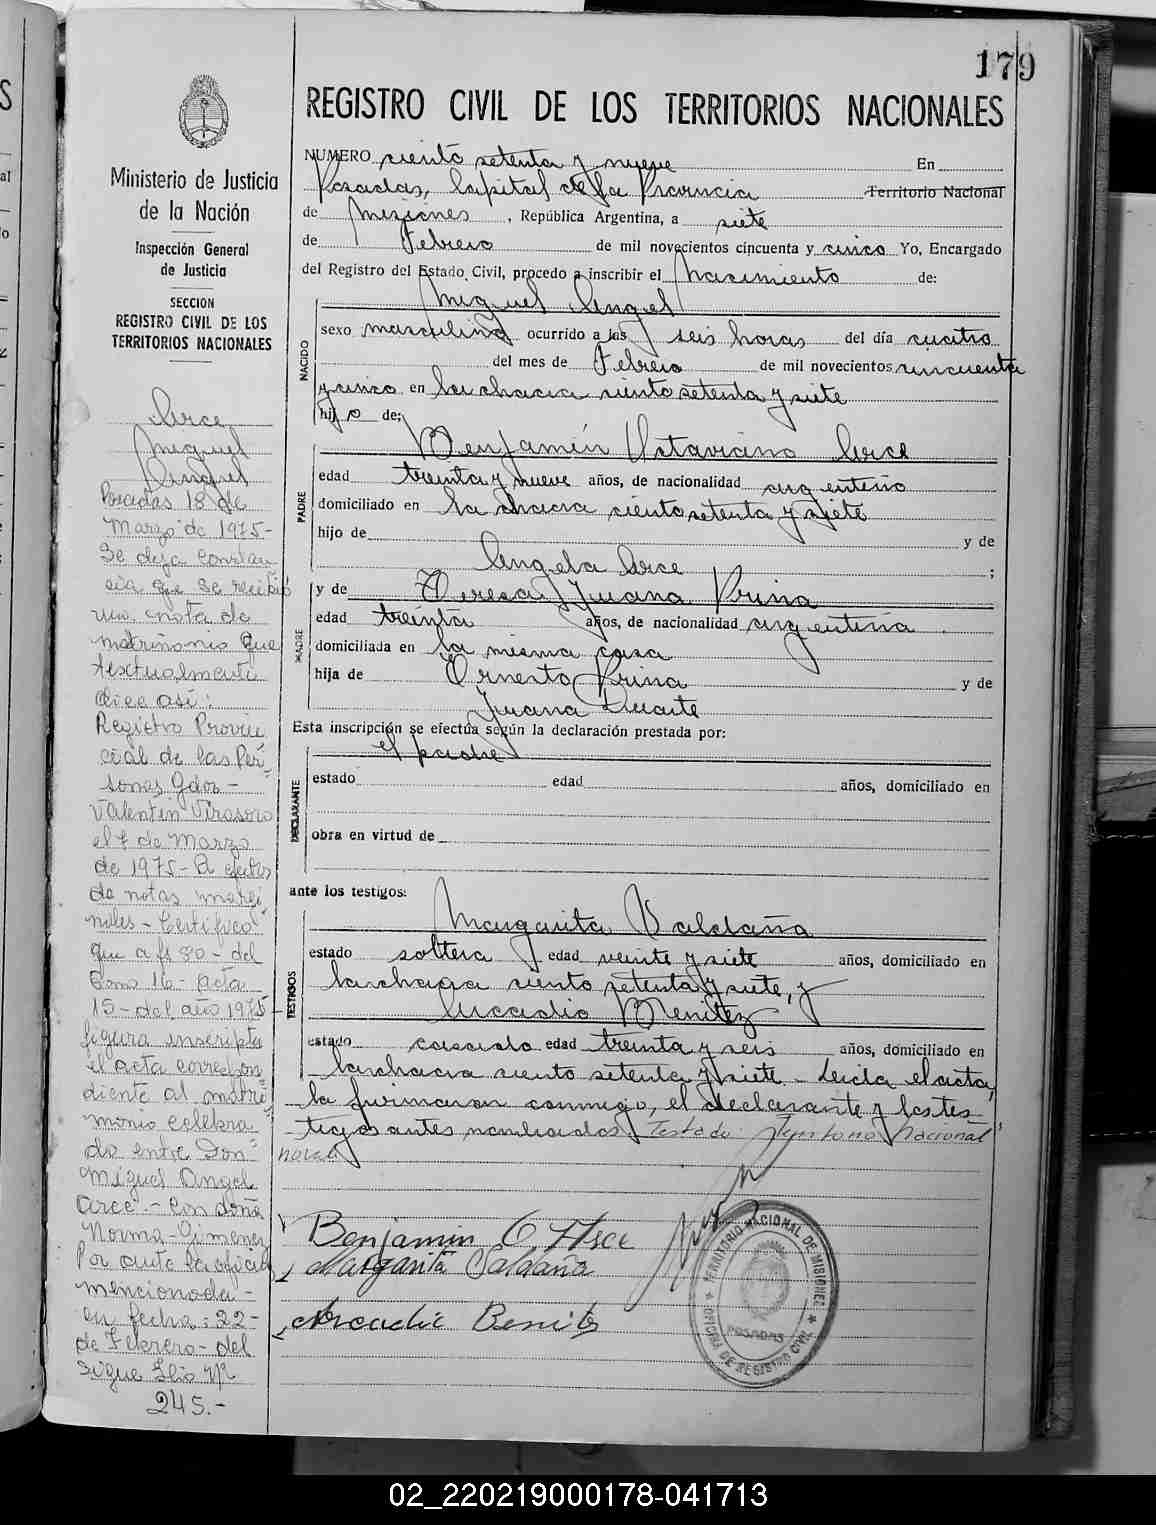 179
REGISTRO CIVIL DE LOS TERRITORIOS NACIONALES
Ministerio de Justicia
de la Nación
Inspección General
de Justicia
SECCION
REGISTRO CIVIL DE LOS
TERRITORIOS NACIONALES
Arce
Miguel
Angel
Posadas 18 de
Marzo de 1975-
Se deja constan
cia que se recibió
una nota de
matrimonio que
textualmente
dice así:
Registro Provin
cial de las Per-
sonas Gdor-
Valentin Virasoro
el 7 de Marzo
de 1975- A efectos
de notas margi
nales- Certifico
que a fs 80- del
tomo 1º- acta
15- del año 1975-
figura inscripta
el acta correspon
diente al matri-
monio celebra
do entre Don-
Miguel Angel
Arce.- con doña
Norma Gimenez
Por ante la oficina
mencionada-
en fecha: 22-
de Febrero- del
Sigue
245.-
NUMERO ciento setenta y nueve En
Posadas, Capital de la Provincia Territorio Nacional
de Misiones, República Argentina, a siete
de Febrero de mil novecientos cincuenta y cinco Yo, Encargado
del Registro del Estado Civil, procedo a inscribir el Nacimiento de:
NACIDO
Miguel Angel
sexo masculino ocurrido a las seis horas del día cuatro
del mes de Febrero de mil novecientos cincuenta
y cinco en la chacra ciento setenta y siete
hijo de:
PADRE
Benjamín Octaviano Arce
edad treinta y nueve años, de nacionalidad argentino
domiciliado en la chacra ciento setenta y siete
hijo de y de
Angela Arce ;
MADRE
y de Teresa Juana Prina
edad treinta años, de nacionalidad argentina.
domiciliada en la misma casa
hija de Ernesto Prina y de
Juana Duarte
Esta inscripción se efectúa según la declaración prestada por:
el padre
DECLARANTE
estado edad años, domiciliado en
obra en virtud de
ante los testigos:
TESTIGOS
Margarita Saldaña
estado soltera edad veinte y siete años, domiciliado en
la chacra ciento setenta y siete, y
Arcadio Benitez
estado casado edad treinta y seis años, domiciliado en
la chacra ciento setenta y siete - Leida el acta,
la firmaron conmigo, el declarante y los tes
tigos antes nombrados. Testado: Territorio Nacional
no vale
Benjamin O. Arce
Margarita Saldaña
Arcadio Benites
TERRITORIO NACIONAL DE MISIONES
POSADAS
OFICINA DE REGISTRO CIVIL
02_220219000178-041713